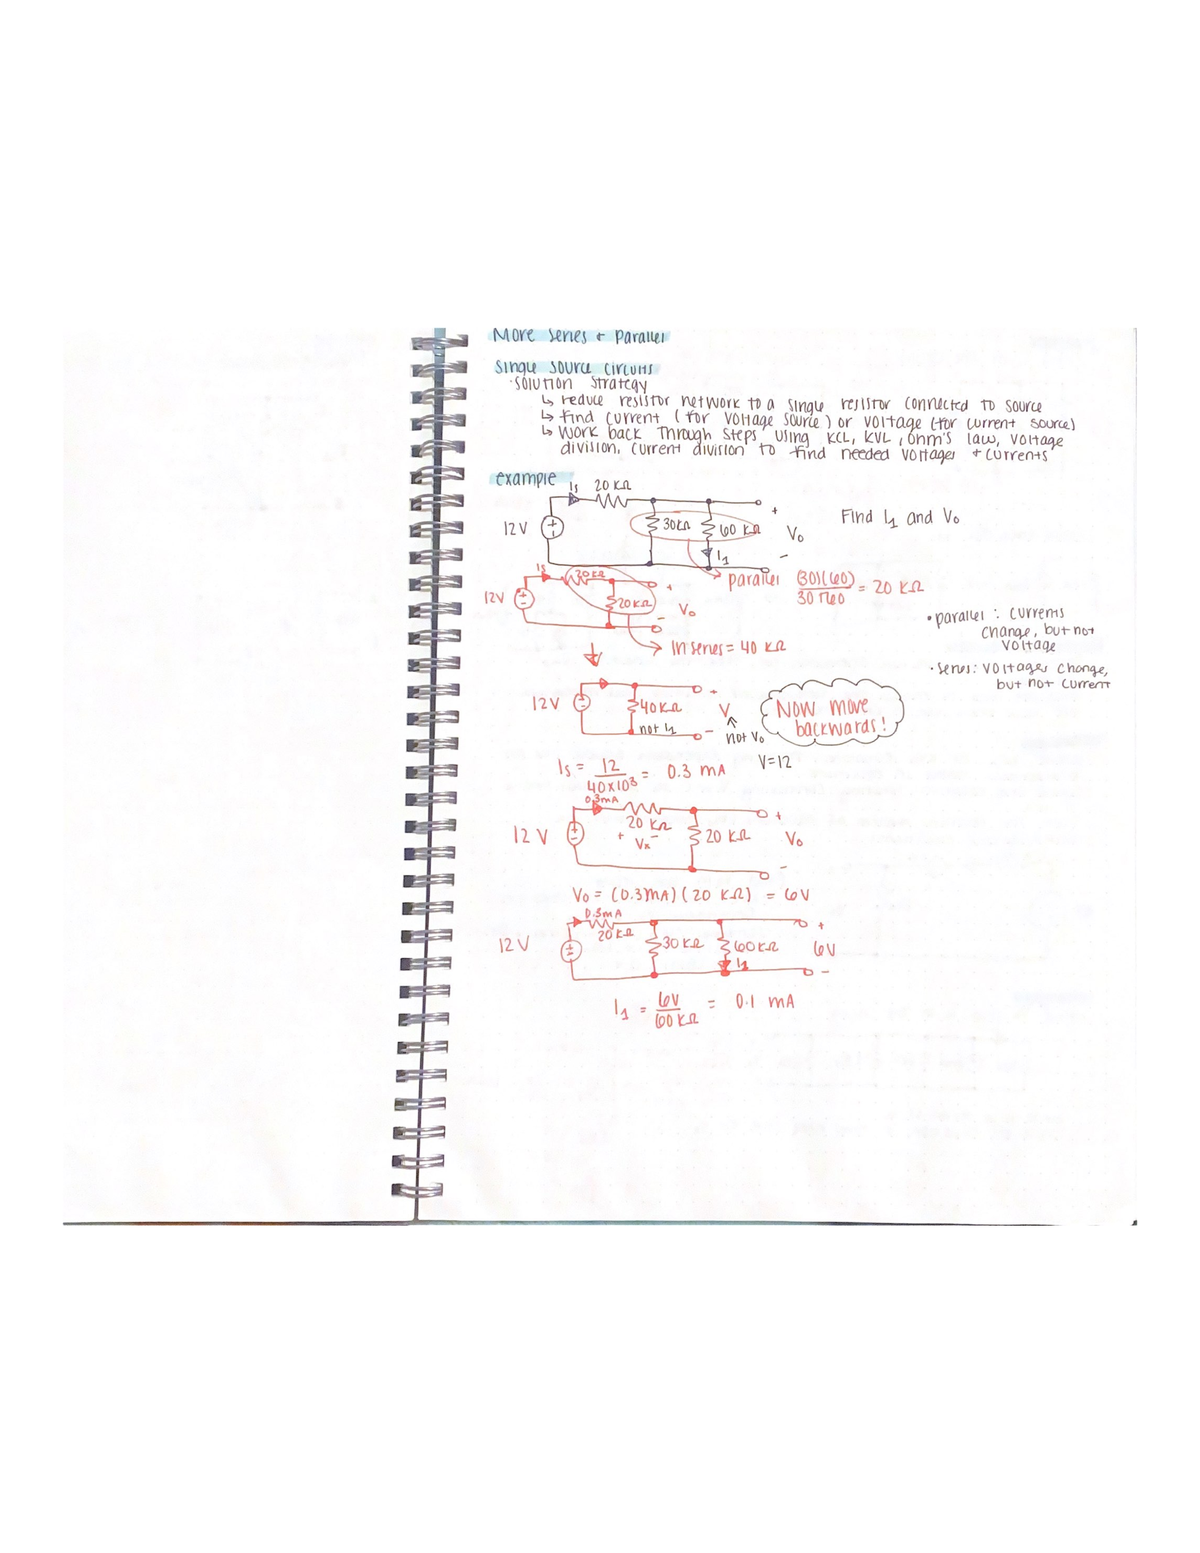 More series + Parallel
Single source circuits
· solution strategy
↳ reduce resistor network to a single resistor connected to source
↳ find current (for voltage source) or voltage (for current source)
↳ work back through steps using KCL, KVL, ohm's law, voltage
division, current division to find needed voltages + currents
example
Is 20 KΩ
12 V
+
-
30KΩ
60 KΩ
I1
+
Vo
-
Find I1 and Vo
parallel (30)(60) / 30+60 = 20 KΩ
Is
20 KΩ
12V
20KΩ
+
Vo
-
In series = 40 KΩ
• parallel : currents
change, but not
voltage
• series: voltages change,
but not current
12V
40KΩ
not I1
+
V
-
not Vo
Now move
backwards!
V=12
Is = 12 / 40x10³ = 0.3 mA
0.3mA
20 KΩ
+ Vx -
12 V
20 KΩ
+
Vo
-
Vo = (0.3mA)(20 KΩ) = 6V
0.3mA
20 KΩ
12 V
30 KΩ
60KΩ
I1
+
6V
-
I1 = 6V / 60 KΩ = 0.1 mA